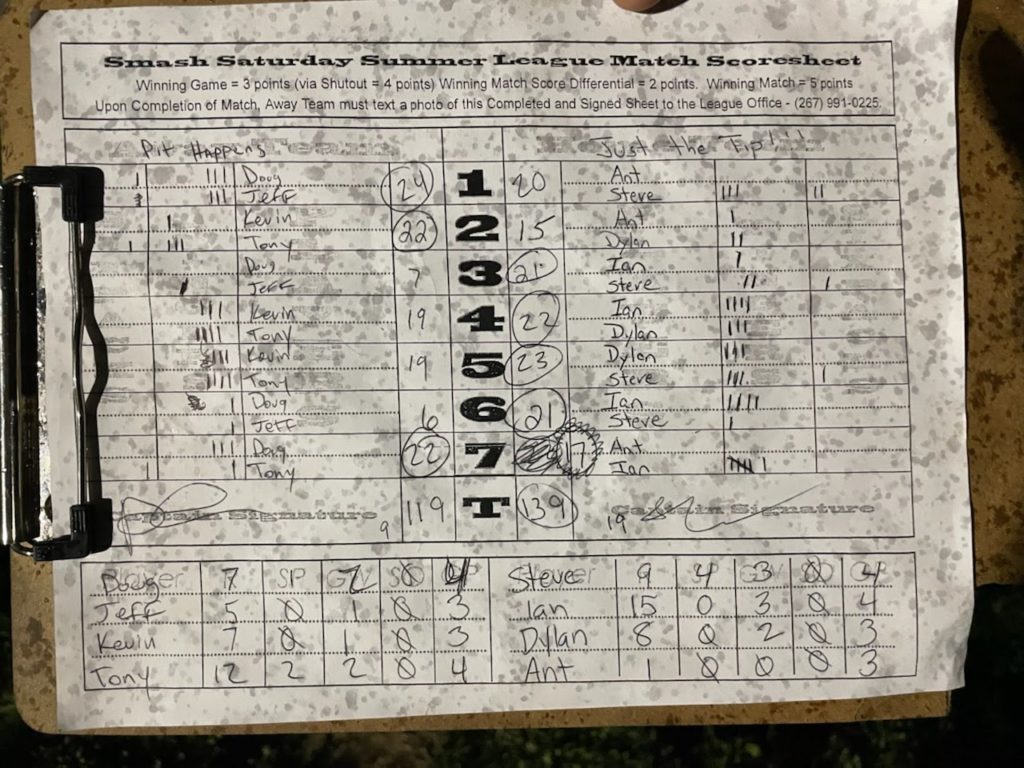 Smash Saturday Summer League Match Scoresheet
Winning Game = 3 points (via Shutout = 4 points) Winning Match Score Differential = 2 points. Winning Match = 5 points
Upon Completion of Match, Away Team must text a photo of this Completed and Signed Sheet to the League Office - (267) 991-0225.
Pit Happens Just the Tip!!!
Doug 24 1 20 Ant
Jeff Steve
Kevin 22 2 15 Ant
Tony Dylan
Doug 7 3 21 Ian
Jeff Steve
Kevin 19 4 22 Ian
Tony Dylan
Kevin 19 5 23 Dylan
Tony Steve
Doug 6 6 21 Ian
Jeff Steve
Doug 22 7 17 Ant
Tony Ian
Captain Signature 9 119 T 139 19 Captain Signature
Doug 7 4 Steve 9 4 3 0 4
Jeff 5 0 1 0 3 Ian 15 0 3 0 4
Kevin 7 0 1 0 3 Dylan 8 0 2 0 3
Tony 12 2 2 0 4 Ant 1 0 0 0 3